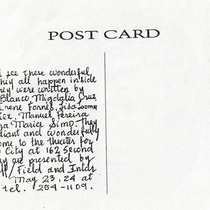 POST CARD
see these wonderful
they all happen inside
They were written by
Blanco, Migdalia Cruz
Irene Fornes, Lisa Loomer
, Manuel Pereira
Maria Simp. They
liant and wonderfully
ome to the theater for
City at 162 Second
they are presented by
Field and Indr
May 23, 24 at
tel. 254-1109.